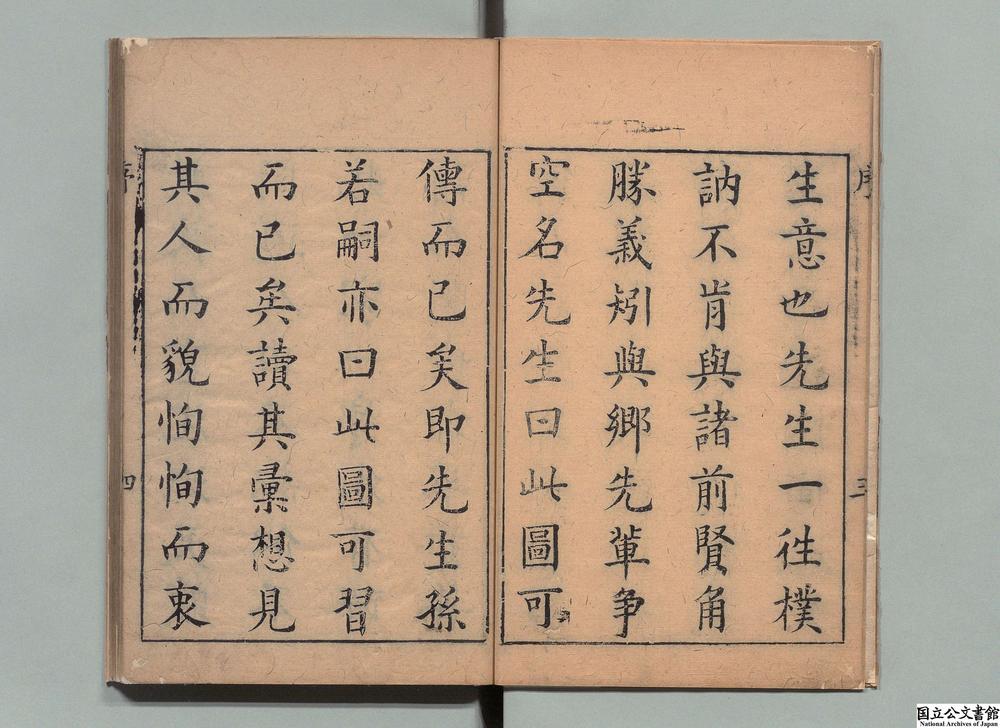 序
三
生意也先生一徃樸
訥不肯與諸前賢角
勝義矧與鄉先軰争
空名先生曰此圖可
傳而已矣即先生孫
若嗣亦曰此圖可習
而已矣讀其彚想見
其人而貌恂恂而衷
序
四
国立公文書館
National Archives of Japan